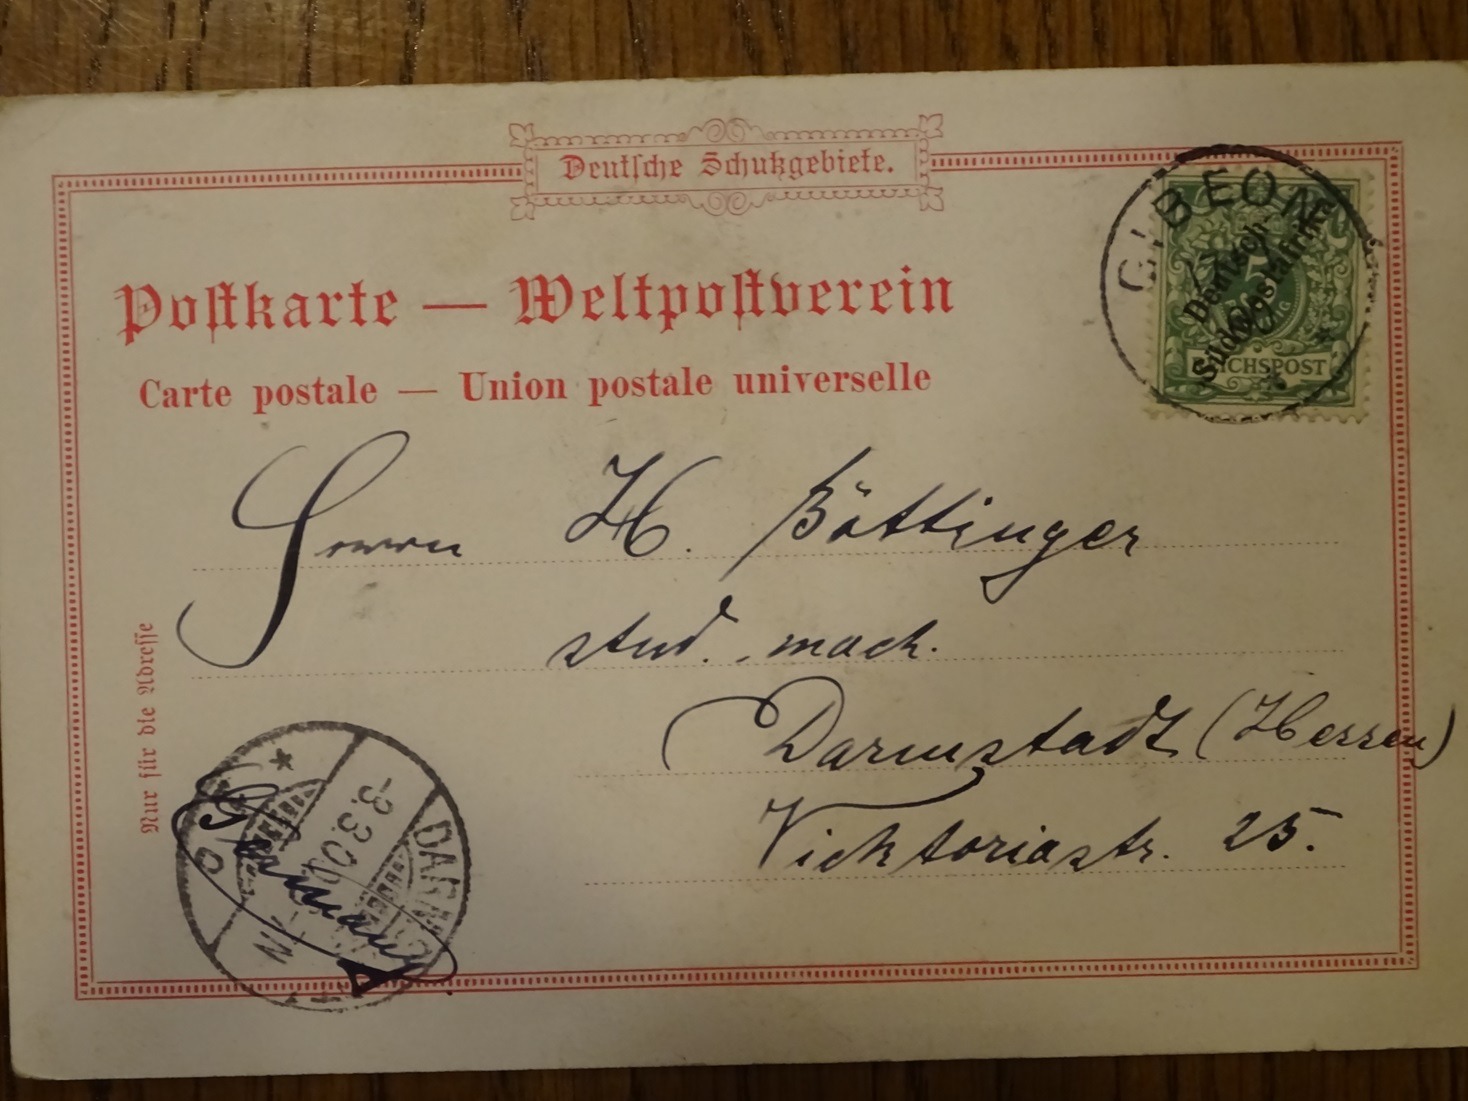 Deutsche Schutzgebiete.
GIBEON
5
Deutsch-
Südwestafrika
REICHSPOST
Postkarte — Weltpostverein
Carte postale — Union postale universelle
Herrn H. Böttinger
stud. mach.
Darmstadt (Hessen)
Vicktoriastr. 25.
Nur für die Adresse
DARM
-3.3.0
N
Germany